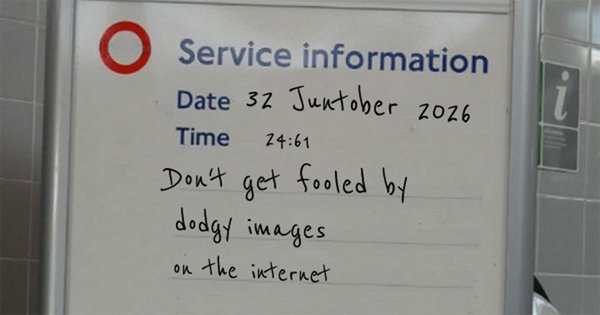 Service information
Date 32 Juntober 2026
Time 24:61
Don't get fooled by
dodgy images
on the internet
i